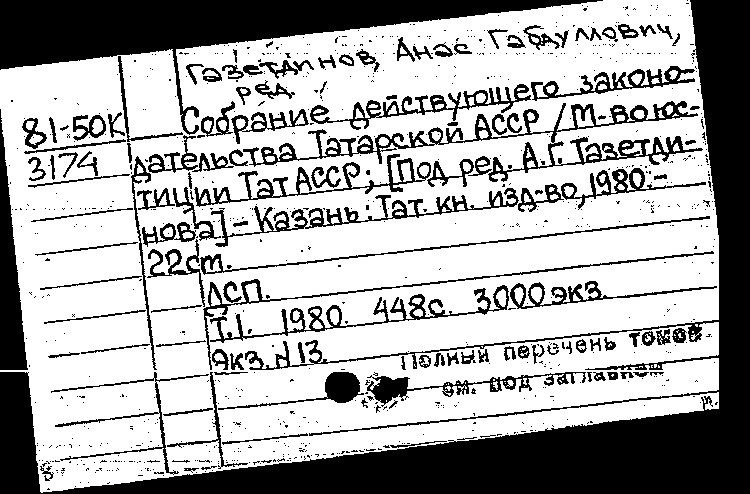 Газетдинов, Анас Габдуллович,
ред.
81-50К
3174
Собрание действующего законо-
дательства Татарской АССР / М-во юс-
тиции ТатАССР; [Под ред. А.Г. Газетди-
нова] – Казань: Тат. кн. изд-во, 1980. –
22 см.
ДСП.
Т.1. 1980. 448с. 3000 экз.
Экз. N 13.
Полный перечень томов
см. под заглавием